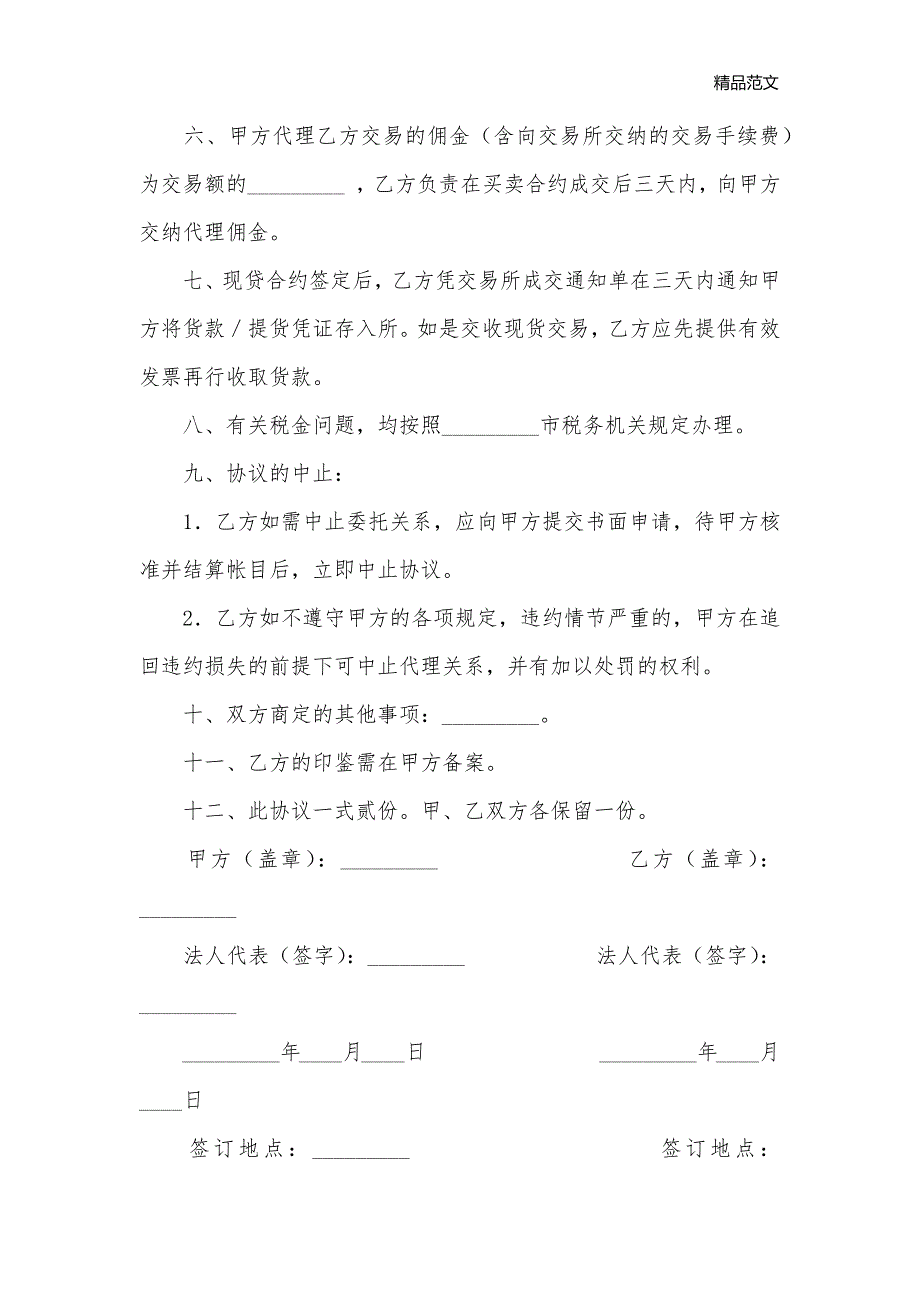 精品范文
六、甲方代理乙方交易的佣金（含向交易所交纳的交易手续费）
为交易额的_________ ，乙方负责在买卖合约成交后三天内，向甲方
交纳代理佣金。
七、现贷合约签定后，乙方凭交易所成交通知单在三天内通知甲
方将货款／提货凭证存入所。如是交收现货交易，乙方应先提供有效
发票再行收取货款。
八、有关税金问题，均按照_________市税务机关规定办理。
九、协议的中止：
1．乙方如需中止委托关系，应向甲方提交书面申请，待甲方核
准并结算帐目后，立即中止协议。
2．乙方如不遵守甲方的各项规定，违约情节严重的，甲方在追
回违约损失的前提下可中止代理关系，并有加以处罚的权利。
十、双方商定的其他事项：_________。
十一、乙方的印鉴需在甲方备案。
十二、此协议一式贰份。甲、乙双方各保留一份。
甲方（盖章）：_________ 乙方（盖章）：
_________
法人代表（签字）：_________ 法人代表（签字）：
_________
_________年____月____日 _________年____月
____日
签订地点：_________ 签订地点：